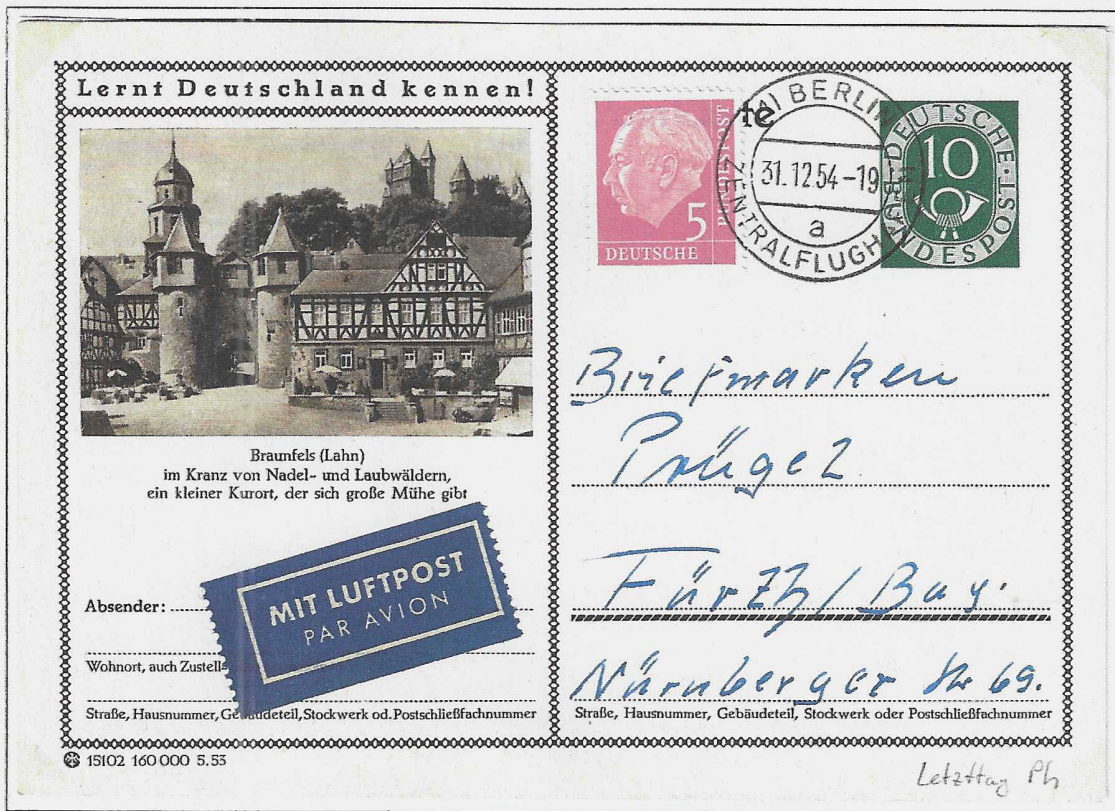 Lernt Deutschland kennen!
Braunfels (Lahn)
im Kranz von Nadel- und Laubwäldern,
ein kleiner Kurort, der sich große Mühe gibt
MIT LUFTPOST
PAR AVION
Absender:
Wohnort, auch Zustell
Straße, Hausnummer, Gebäudeteil, Stockwerk od. Postschließfachnummer
15102 160 000 5.53
5
DEUTSCHE
BUNDESPOST
BERLIN
31.12.54-19
a
ZENTRALFLUGH
DEUTSCHE
10
BUNDESPOST
Briefmarken
Prügel
Fürth / Bay.
Nürnberger Str 69.
Straße, Hausnummer, Gebäudeteil, Stockwerk oder Postschließfachnummer
Letzttag Ph